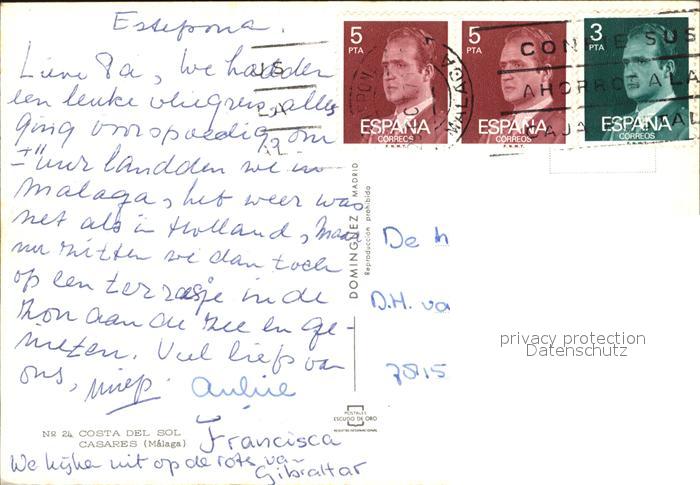 Estepona.
Lieve Pa, We hadden
een leuke vliegreis, alles
ging voorspoedig, om
1 uur landden we in
Malaga, het weer was
net als in Holland, maar
nu zitten we dan toch
op een terrasje in de
zon aan de zee en ge-
nieten. Veel liefs van
ons, Miep.
Francisca
We kijken uit op de rots van
Gibraltar
Nº 24 COSTA DEL SOL
CASARES (Málaga)
DOMINGUEZ MADRID
Reproducción prohibida
POSTALES
ESCUDO DE ORO
5
PTA
ESPAÑA
CORREOS
F.N.M.T.
5
PTA
ESPAÑA
CORREOS
F.N.M.T.
3
PTA
ESPAÑA
CORREOS
F.N.M.T.
MALAGA
CON SUS
AHORRO
CAJA
De h
D.H. va
7815
privacy protection
Datenschutz